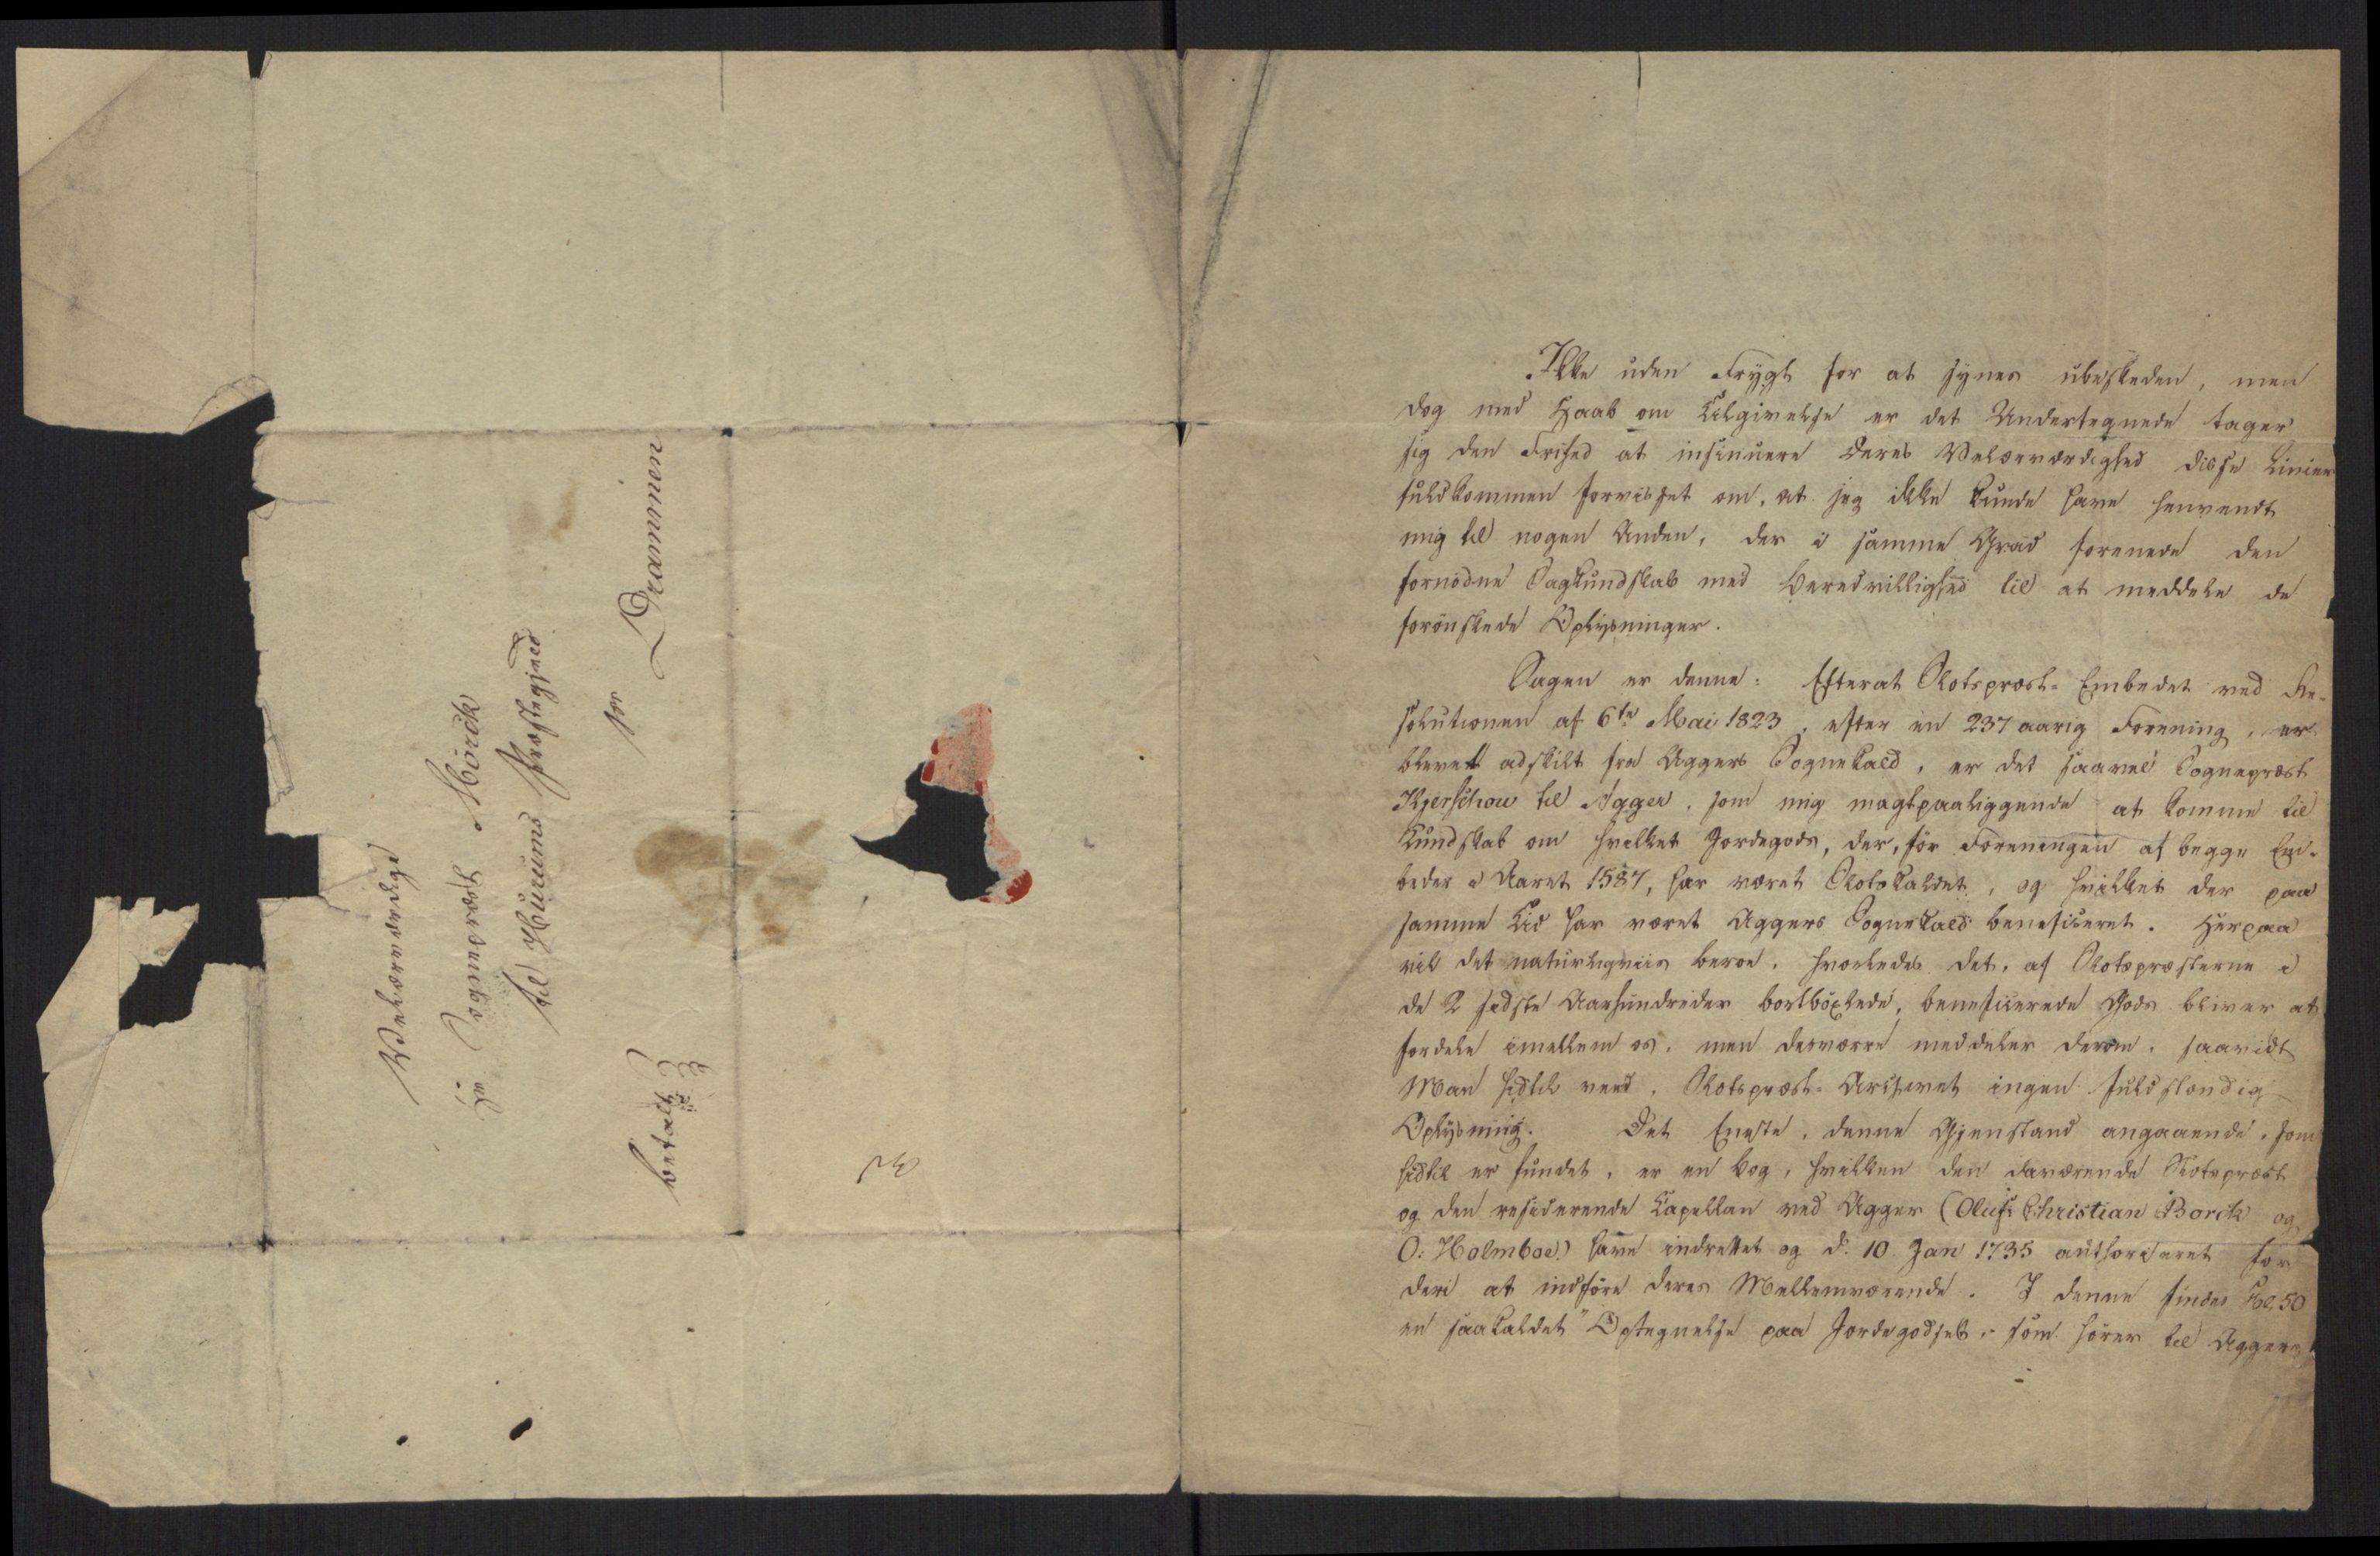 Velærværdige
Hr. Sognepræst Mörch
til Hurums Præstegjeld
pr Drammen
betalt
Ikke uden Frygt for at synes ubeskeden, men
dog med Haab om Tilgivelse er det Undertegnede tager
sig den Frihed at insinuere Deres Velærværdighed disse Linier
fuldkommen forvisset om, at jeg ikke kunde have henvendt
mig til nogen Anden, der i samme Grad forenede den
fornödne Sagkundskab med Beredvillighed til at meddele de
forönskede Oplysninger.
Sagen er denne: Efterat Slotspræst-Embedet ved Re-
solutionen af 6te Mai 1823, efter en 237 aarig Forening, er
blevet adskilt fra Aggers Sognekald, er det saavel Sognepræst
Kjerschow til Agger, som mig magtpaaliggende at komme til
Kundskab om hvilket Jordegods, der, för Foreningen af begge Em-
beder i Aaret 1587, har været Slotskaldet, og hvilket der paa
samme Tid har været Aggers Sognekald beneficeret. Herpaa
vil det naturligviis beroe, hvorledes det, af Slotspræsterne i
de 2 sidste Aarhundreder bortböxlede, beneficerede Gods bliver at
fordele imellem os, men desværre meddeler derom, saavidt
Man hidtil veed, Slotspræst-Archivet ingen fuldstændig
Oplysning. Det Eneste, denne Gjenstand angaaende, som
hidtil er fundet, er en Bog, hvilken den daværende Slotspræst
og den residerende Capellan ved Agger (Oluf Christian Borch og
O: Holmboe) have indrettet og d: 10 Jan 1735 authoriseret for
deri at indföre deres Mellemværende. I denne findes Fol. 50
en saakaldet "Optegnelse paa Jordegodset, som hörer til Aggers